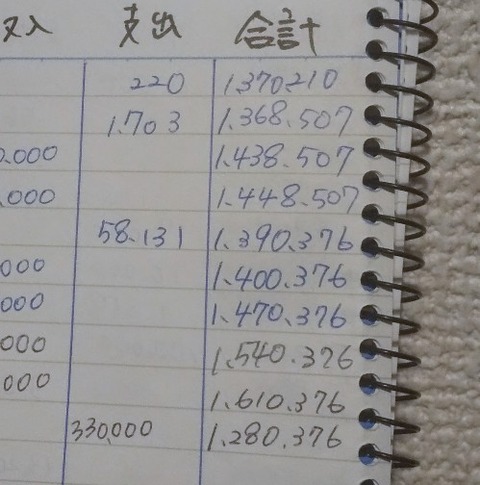 収入 支出 合計
220 1,370,210
1.703 1.368.507
0.000 1.438.507
.000 1.448.507
58.131 1.390.376
000 1.400.376
000 1.470.376
000 1.540.376
000 1.610.376
330,000 1.280.376